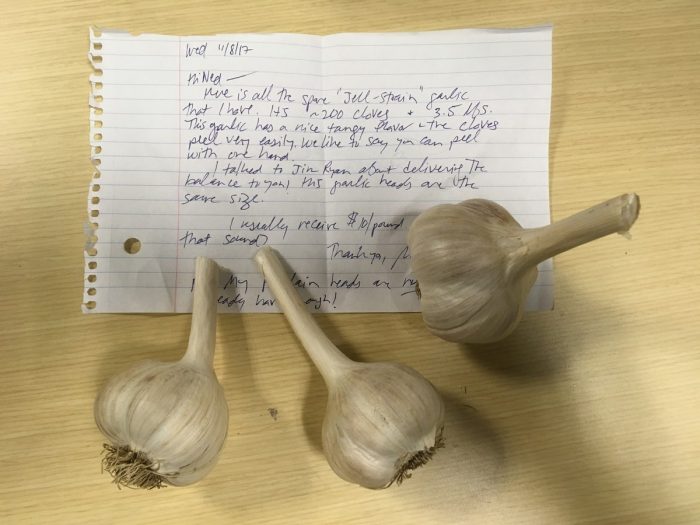 Wed 11/8/17
Hi Ned —
Here is all the spare "Jell-strain" garlic
that I have. It's ~200 cloves + 3.5 lbs.
This garlic has a nice tangy flavor + the cloves
peel very easily. We like to say you can peel
with one hand.
I talked to Jim Ryan about delivering the
balance to you! His garlic heads are the
same size.
I usually receive $10/pound
that sound
Thank you,
My heads are